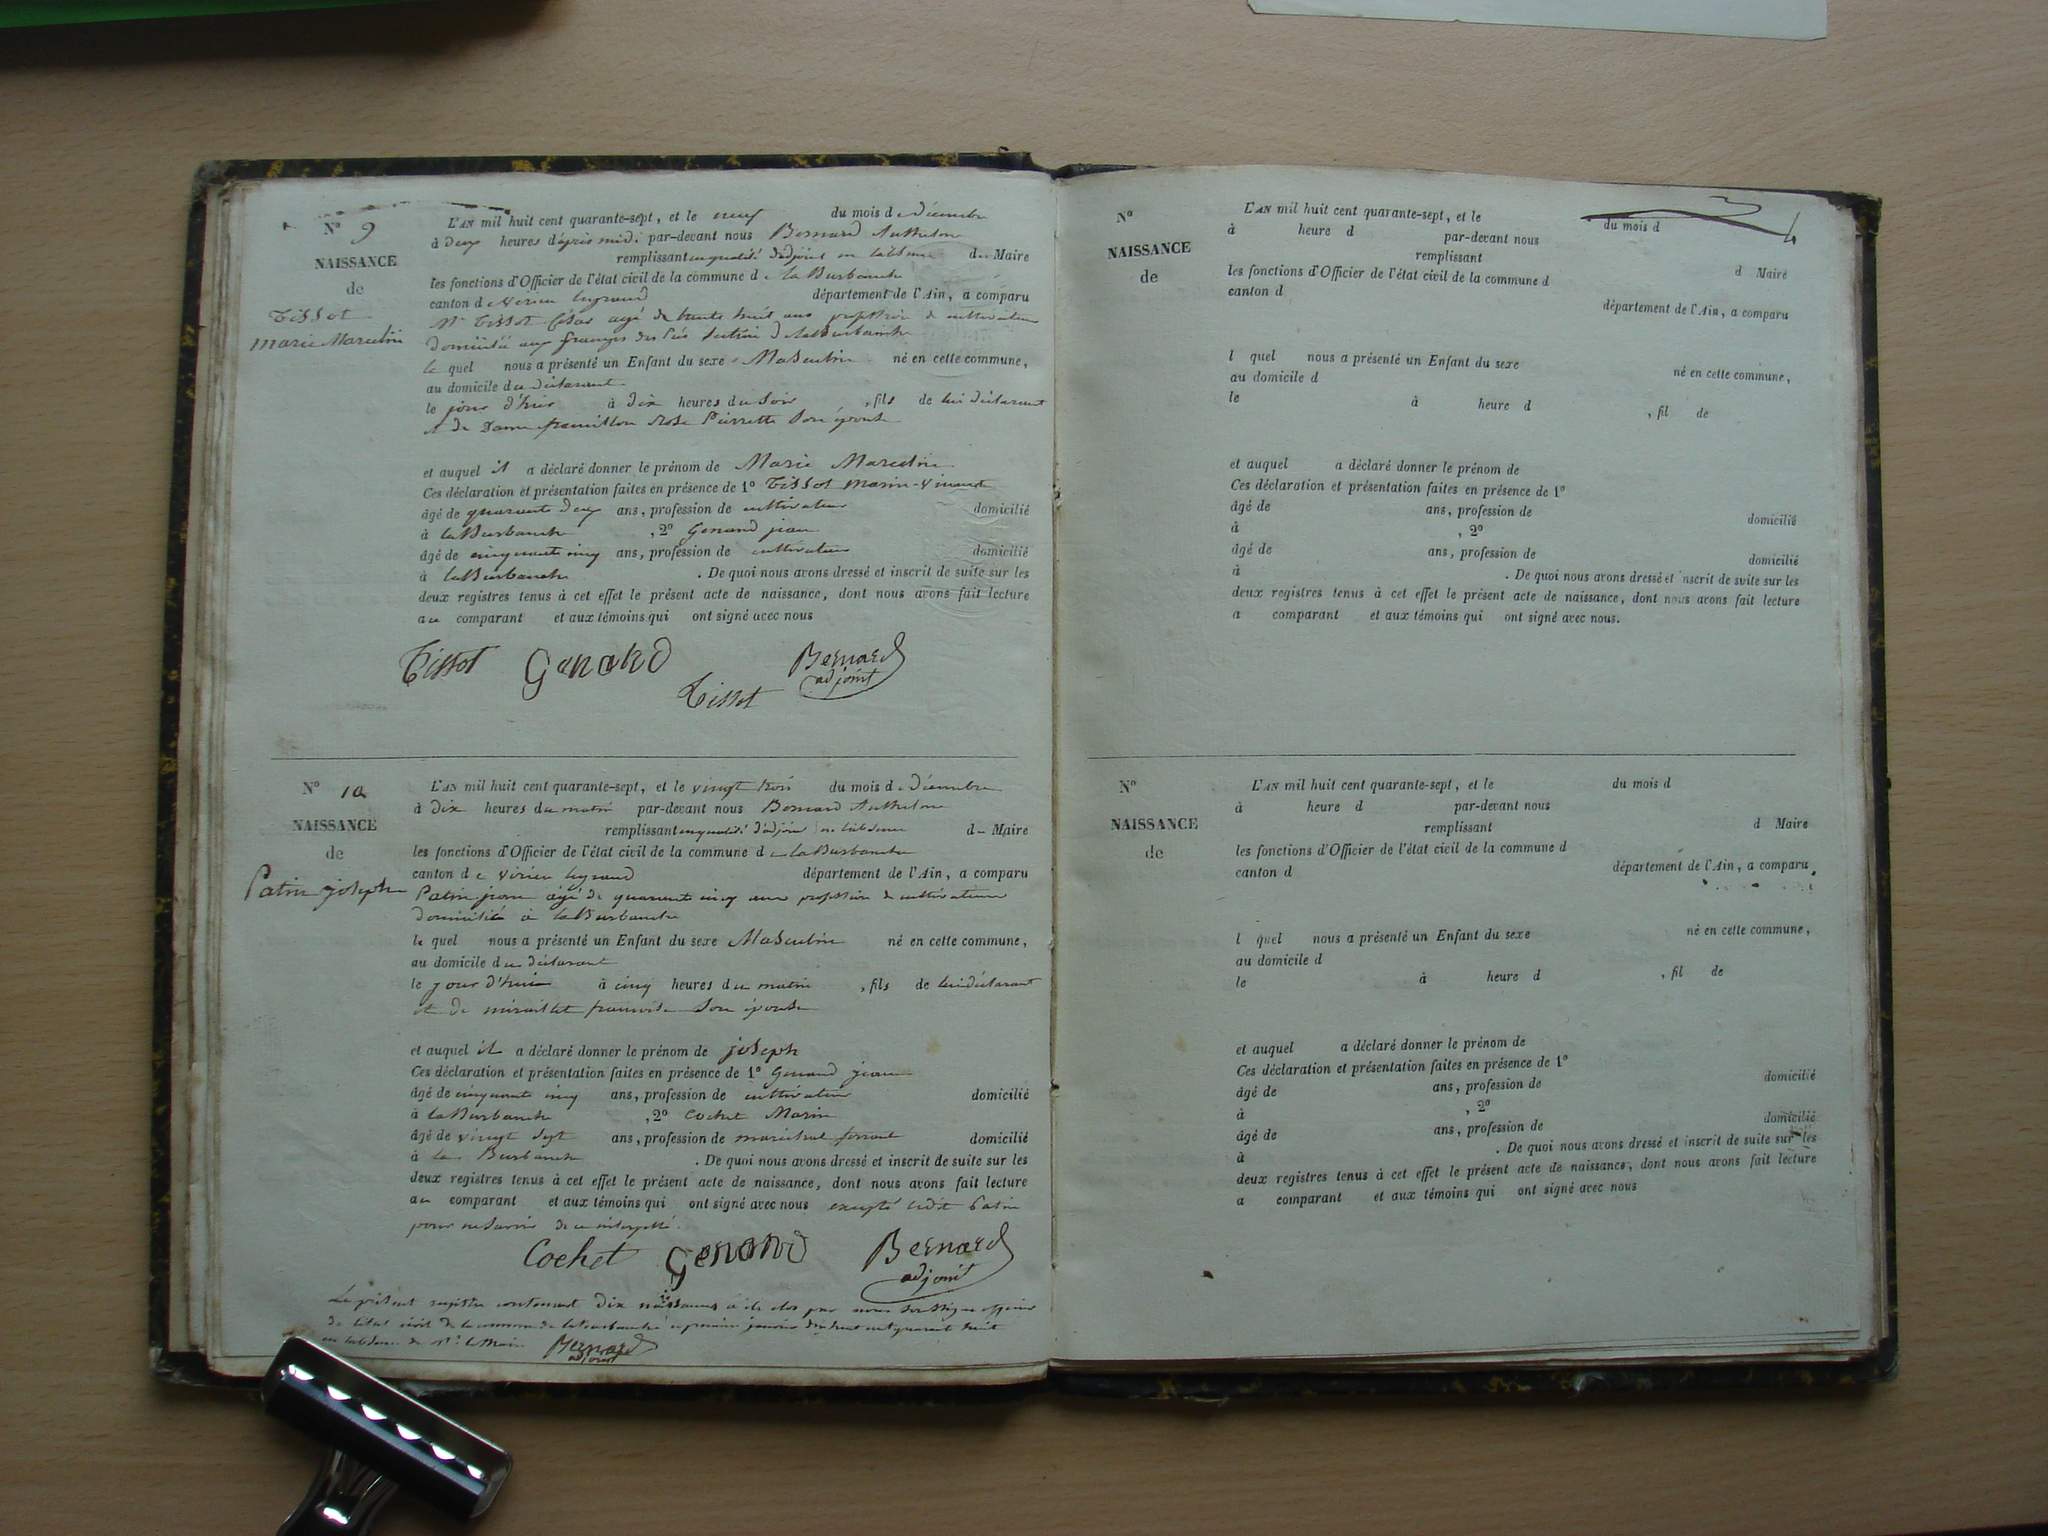 Nº 9
NAISSANCE
de
Tissot
Marie Marcelin
L'AN mil huit cent quarante-sept, et le neuf du mois de Décembre
à deux heures d'après midi par-devant nous Bernard Anthelme
remplissant en qualité d'adjoint en l'absence du Maire
les fonctions d'Officier de l'état civil de la commune de la Burbanche
canton de virieu legrand département de l'Ain, a comparu
Mr Tissot César agé de trente huit ans profession de cultivateur
domicilié aux granges des section de la Burbanche
le quel nous a présenté un Enfant du sexe Masculin né en cette commune,
au domicile du déclarant
le jour d'hier à dix heures du soir , fils de lui déclarant
et de Dame Rose Pierrette son épouse
et auquel il a déclaré donner le prénom de Marie Marcelin
Ces déclaration et présentation faites en présence de 1º Tissot Marin-vincent
âgé de quarante deux ans, profession de cultivateur domicilié
à la Burbanche , 2º Genand jean
âgé de cinquante cinq ans, profession de cultivateur domicilié
à la Burbanche . De quoi nous avons dressé et inscrit de suite sur les
deux registres tenus à cet effet le présent acte de naissance, dont nous avons fait lecture
au comparant et aux témoins qui ont signé avec nous
Tissot Genand Bernard
adjoint
Tissot
Nº 10
NAISSANCE
de
Patin joseph
L'AN mil huit cent quarante-sept, et le vingt trois du mois de Décembre
à dix heures du matin par-devant nous Bernard Anthelme
remplissant en qualité d'adjoint en l'absence du Maire
les fonctions d'Officier de l'état civil de la commune de la Burbanche
canton de virieu legrand département de l'Ain, a comparu
Patin jean agé de quarante cinq ans profession de cultivateur
domicilié à la Burbanche
le quel nous a présenté un Enfant du sexe Masculin né en cette commune,
au domicile du déclarant
le jour d'hui à cinq heures du matin , fils de lui déclarant
et de françoise son épouse
et auquel il a déclaré donner le prénom de joseph
Ces déclaration et présentation faites en présence de 1º Genand jean
âgé de cinquante cinq ans, profession de cultivateur domicilié
à la Burbanche , 2º Cochet Marin
âgé de vingt sept ans, profession de maréchal ferrant domicilié
à la Burbanche . De quoi nous avons dressé et inscrit de suite sur les
deux registres tenus à cet effet le présent acte de naissance, dont nous avons fait lecture
au comparant et aux témoins qui ont signé avec nous excepté ledit Patin
pour ne savoir de ce interpellé.
Cochet Genand Bernard
adjoint
Le présent registre contenant dix naissances a été clos par nous soussigné officier
de l'état civil de la commune de la Burbanche ce premier janvier dix huit cent quarante huit
en l'absence de Mr le Maire Bernard
adjoint
4
Nº
NAISSANCE
de
L'AN mil huit cent quarante-sept, et le du mois d
à heure d par-devant nous
remplissant d Maire
les fonctions d'Officier de l'état civil de la commune d
canton d département de l'Ain, a comparu
l quel nous a présenté un Enfant du sexe né en cette commune,
au domicile d
le à heure d , fil de
et auquel a déclaré donner le prénom de
Ces déclaration et présentation faites en présence de 1º
âgé de ans, profession de domicilié
à , 2º
âgé de ans, profession de domicilié
à . De quoi nous avons dressé et inscrit de suite sur les
deux registres tenus à cet effet le présent acte de naissance, dont nous avons fait lecture
a comparant et aux témoins qui ont signé avec nous.
Nº
NAISSANCE
de
L'AN mil huit cent quarante-sept, et le du mois d
à heure d par-devant nous
remplissant d Maire
les fonctions d'Officier de l'état civil de la commune d
canton d département de l'Ain, a comparu
l quel nous a présenté un Enfant du sexe né en cette commune,
au domicile d
le à heure d , fil de
et auquel a déclaré donner le prénom de
Ces déclaration et présentation faites en présence de 1º
âgé de ans, profession de domicilié
à , 2º
âgé de ans, profession de domicilié
à . De quoi nous avons dressé et inscrit de suite sur les
deux registres tenus à cet effet le présent acte de naissance, dont nous avons fait lecture
a comparant et aux témoins qui ont signé avec nous